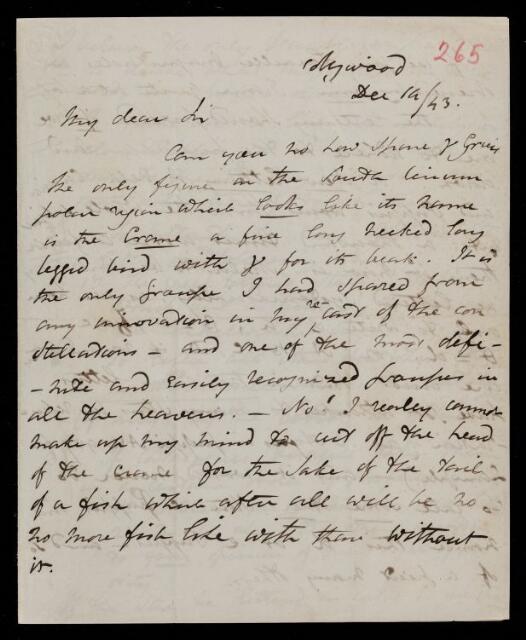 265
Collingwood
Dec 19/43.
My dear Sir
Can you no how spare γ Gruis
the only figure in the South circum
polar region which looks like its name
is the Crane a fine long necked long
legged bird with γ for its beak. It is
the only groupe I had spared from
any innovation in my recast of the con
stellations – and one of the most defi-
-nite and easily recognized groupes in
all the heavens. – No! I realey cannot
make up my mind to cut off the head
of the crane for the sake of the tail
of a fish which after all will be no
no more fish like with than without
it.